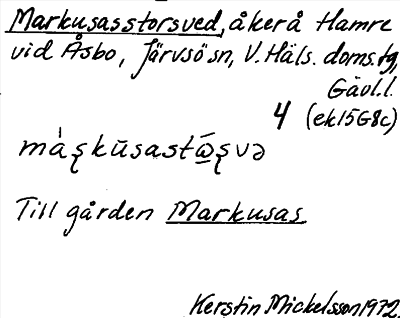 Markusasstorsved, åker å Hamre
vid Åsbo, Järvsö sn, V. Häls. doms.tg,
Gävl. l.
4 (ek 15G8c)
Till gården Markusas
Kerstin Mickelsson 1972.